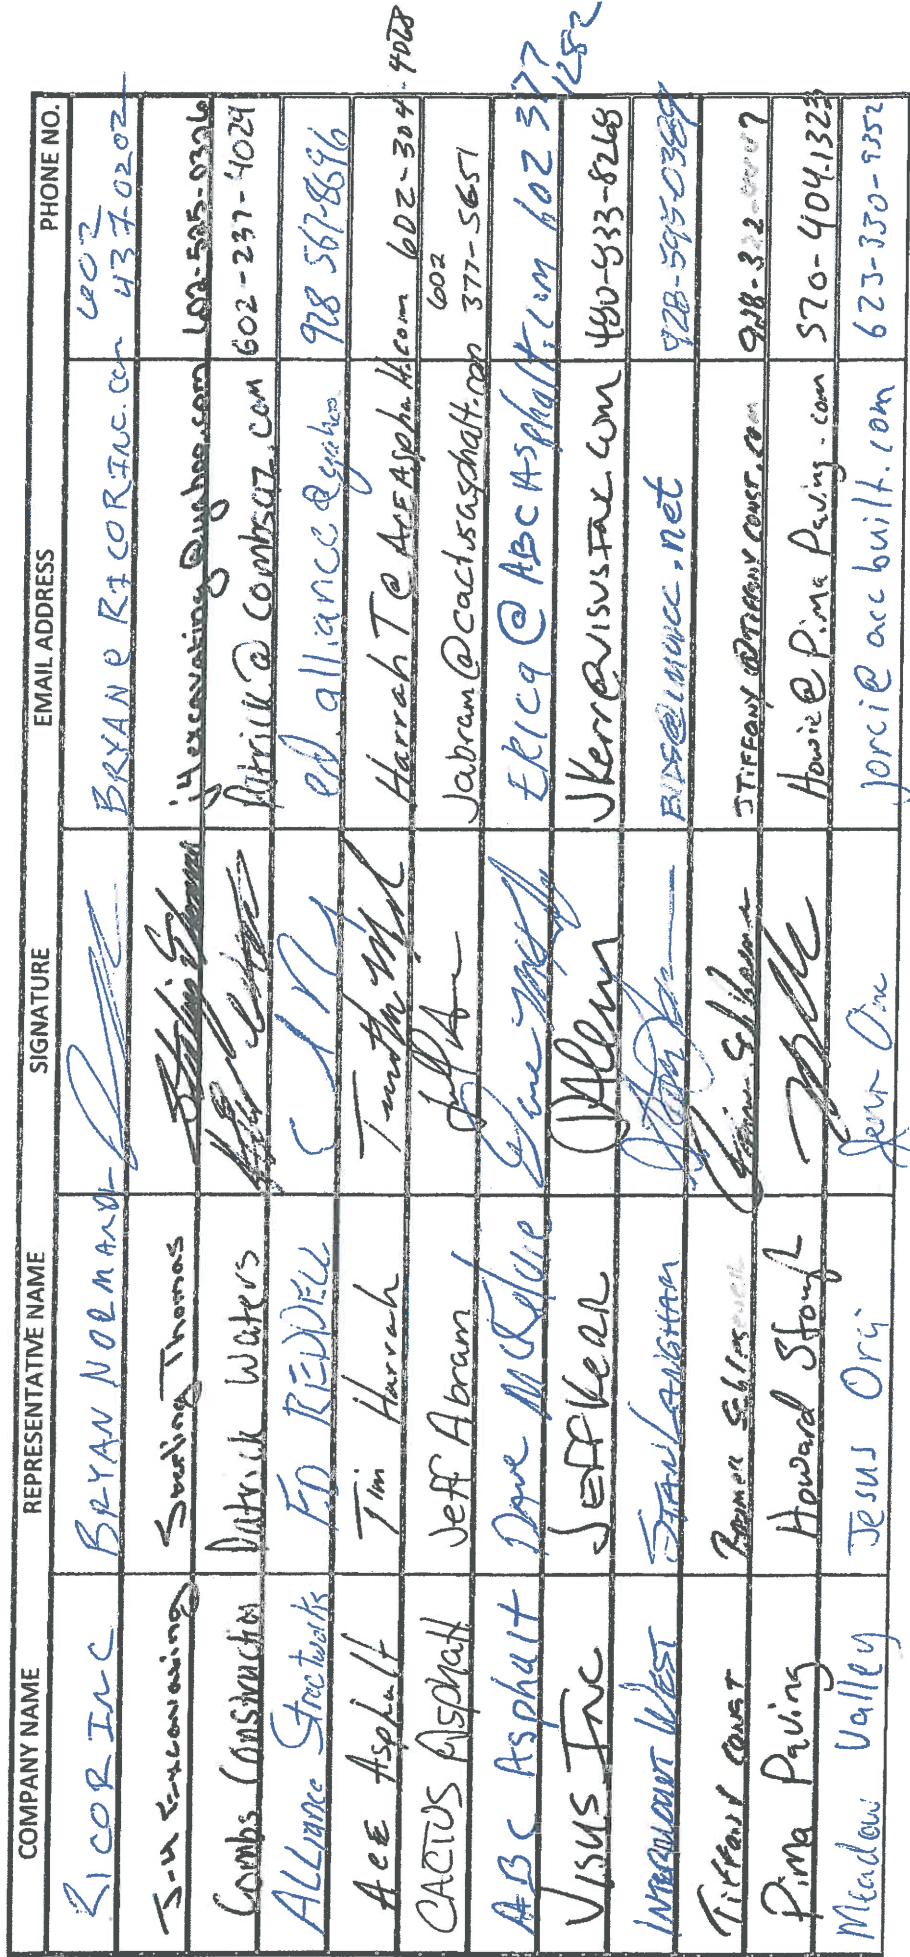 COMPANY NAME REPRESENTATIVE NAME SIGNATURE EMAIL ADDRESS PHONE NO.
RICOR INC BRYAN NORMAND BRYAN@RICORINC.com 602 437-0202
J-4 Excavating Sterling Thomas j4excavating@yahoo.com 602-505-0326
Combs Construction Patrick Waters Patrick@combsaz.com 602-237-4029
ALLiance Streetworks ED REDDELL ed alliance@yahoo 928 567-8696
ACE Asphalt Tim Harrah HarrahT@ACEAsphalt.com 602-304-4068
CACTUS Asphalt Jeff Abram Jabram@cactusasphalt.com 602 377-5651
ABC Asphalt Dave McIntyre ERICq@ABCAsphalt.com 602 377 1282
VISUS INC JEFF KERR JKerr@VISUSINC.com 480-833-8268
INTERMOUNT WEST STAN LANGHAM BIDS@imwcc.net 928-595-0389
TIFFANY CONST JTIFFANY@TIFFANYCONST.com
Pima Paving Howard Stough Howie@PimaPaving.com 520-404-1323
Meadow Valley Jesus Orci jorci@arcbuilt.com 623-330-9352